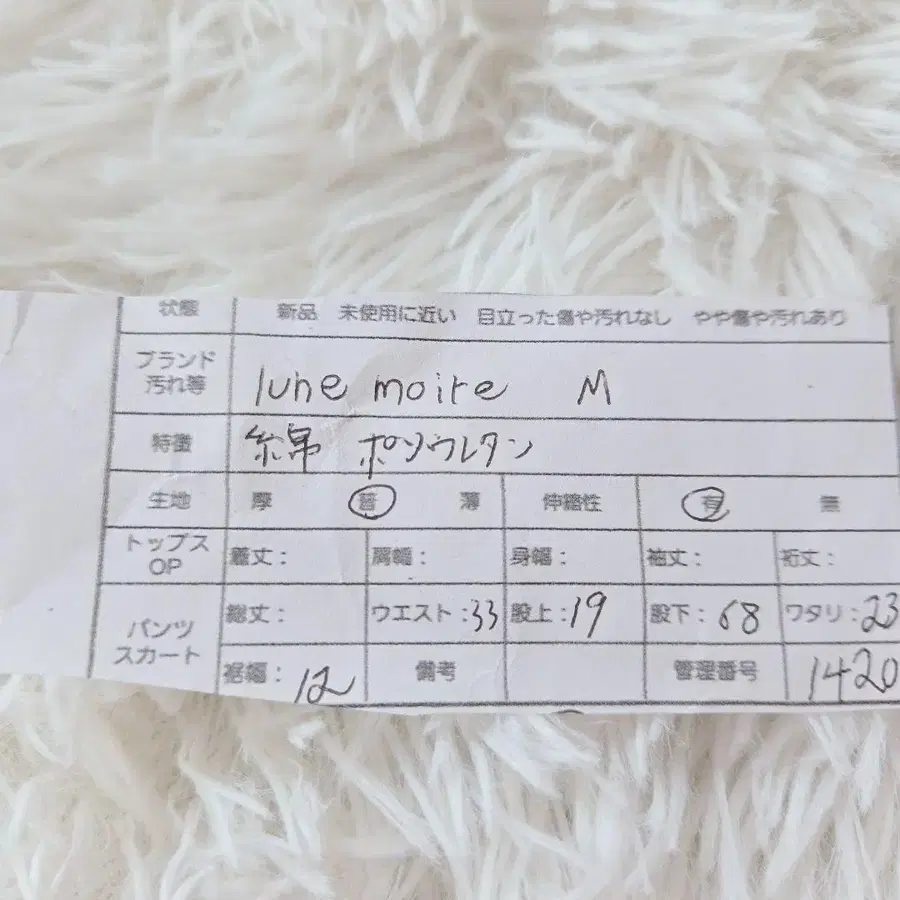 状態 新品 未使用に近い 目立った傷や汚れなし やや傷や汚れあり
ブランド
汚れ等 lune moire M
特徴 綿 ポソウレタン
生地 厚 普 薄 伸縮性 有 無
トップス
OP 着丈: 肩幅: 身幅: 袖丈: 裄丈:
パンツ
スカート 総丈: ウエスト:33 股上:19 股下:68 ワタリ:23
裾幅:12 備考 管理番号 1420